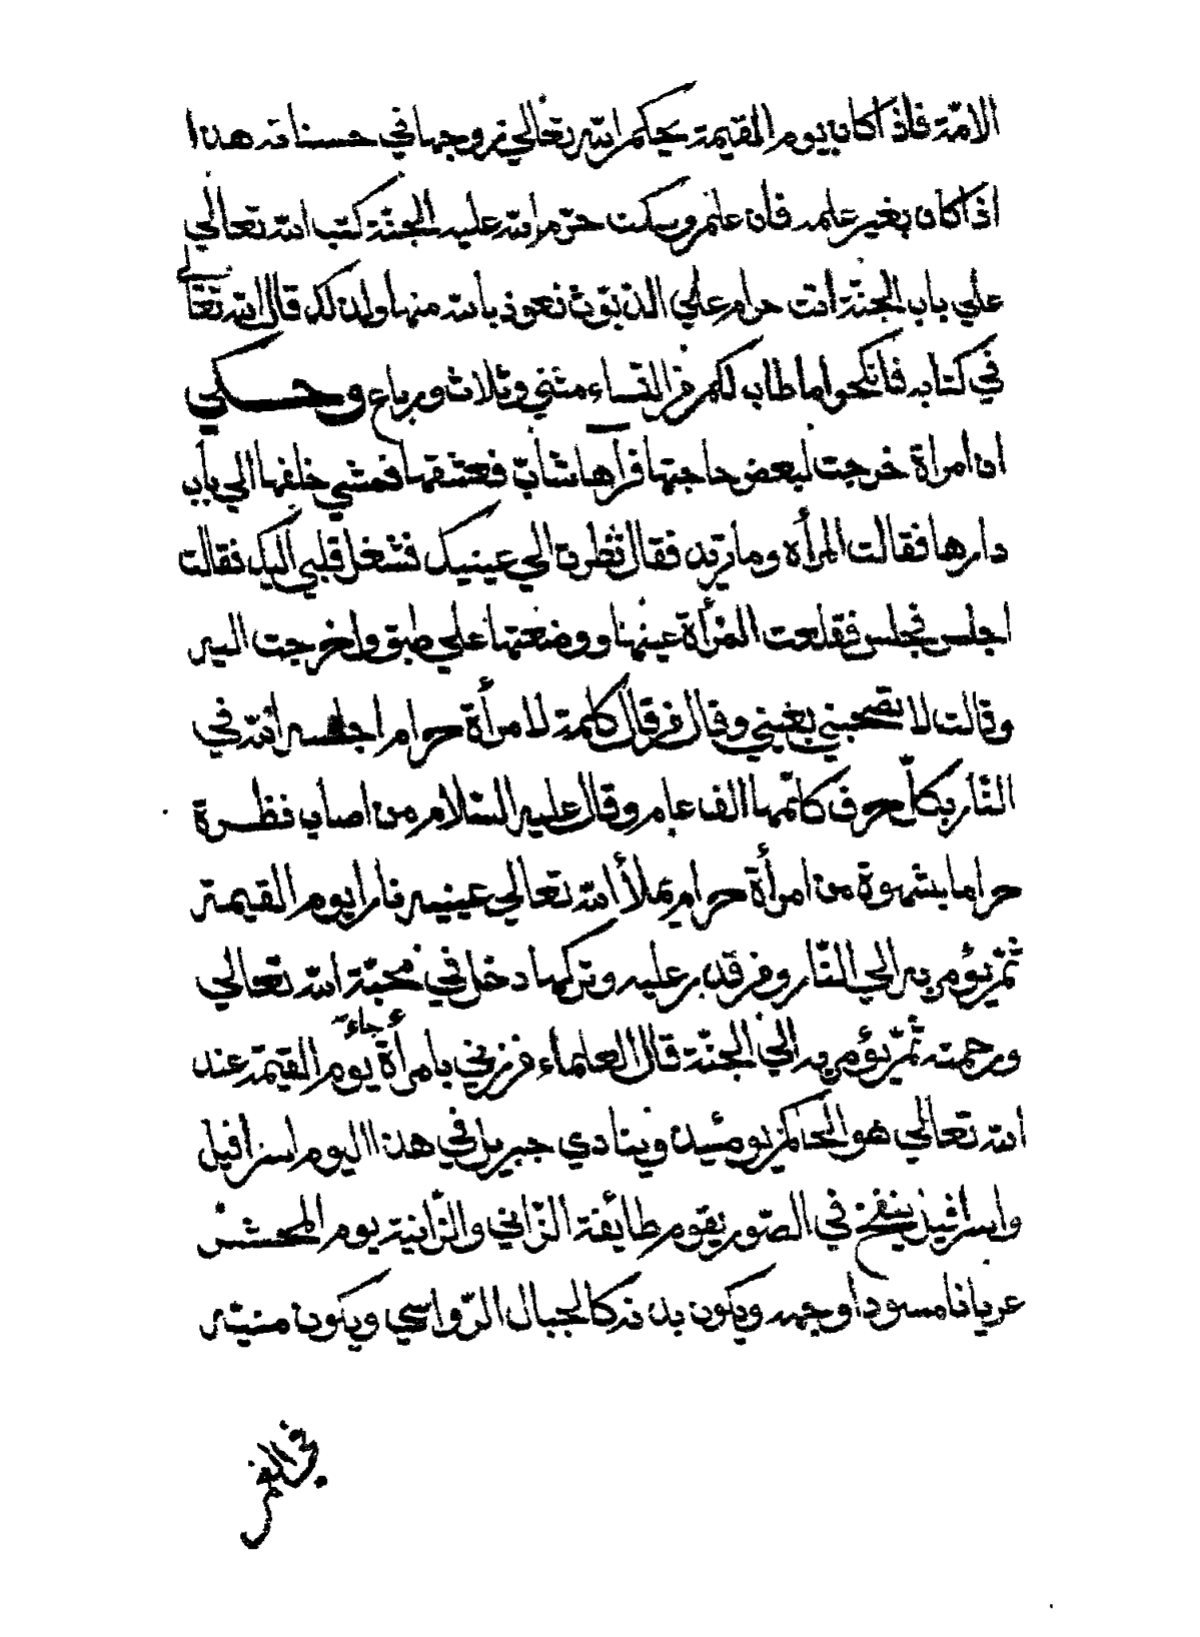 الامّة فاذا كان يوم القيمة يحكم الله تعالي زوجها في حسناته هذا
اذا كان بغير علمه فان علم وسكت حرّم الله عليه الجنّة كتب الله تعالي
علي باب الجنّة انت حرام علي الديّوث نعوذ بالله منها ولذلك قال الله تعالي
في كتابه فانكحوا ما طاب لكم من النّساء مثني وثلاث ورباع وحكي
ان امراة خرجت لبعض حاجتها فرآها شابّ فعشقها فمشي خلفها الي باب
دارها فقالت المرأة وما تريد فقال نظرت الي عينيك فشغل قلبي اليك فقالت
اجلس فجلس فقلعت المرأة عينها ووضعتها علي طبق واخرجت اليه
وقالت لا تصحبني بغيني وقال من قال كلمة لامرأة حرام اجلسه الله في
النّار بكلّ حرف كلّمها الف عام وقال عليه السّلام من اصاب نظرة
حراما بشهوة من امرأة حرام يملأ الله تعالي عينيه نارا يوم القيمة
ثمّ يؤمر به الي النّار ومن قدر عليه وتركها دخل في محبّة الله تعالي
ورحمته ثمّ يؤمر به الي الجنّة قال العلماء من زني بامرأة جاء يوم القيمة عند
الله تعالي هو الحاكم يومئيذ وينادي جبريل في هذا اليوم اسرافيل
واسرافيل ينفخ في الصّور يقوم طائفة الزّاني والزّانية يوم المحشر
عريانا مسودا وجهه ويكون بدنه كالجبال الرّواسي ويكون منيته